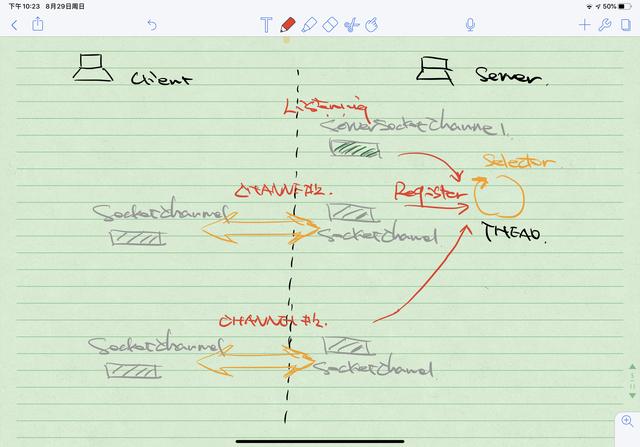 下午10:23 8月29日周日
50%
Client
Server.
Listening
ServerSocketChannel.
Selector
CHANNEL#2.
Register
SocketChannel
SocketChannel
THEAD.
CHANNEL #2.
SocketChannel
SocketChannel